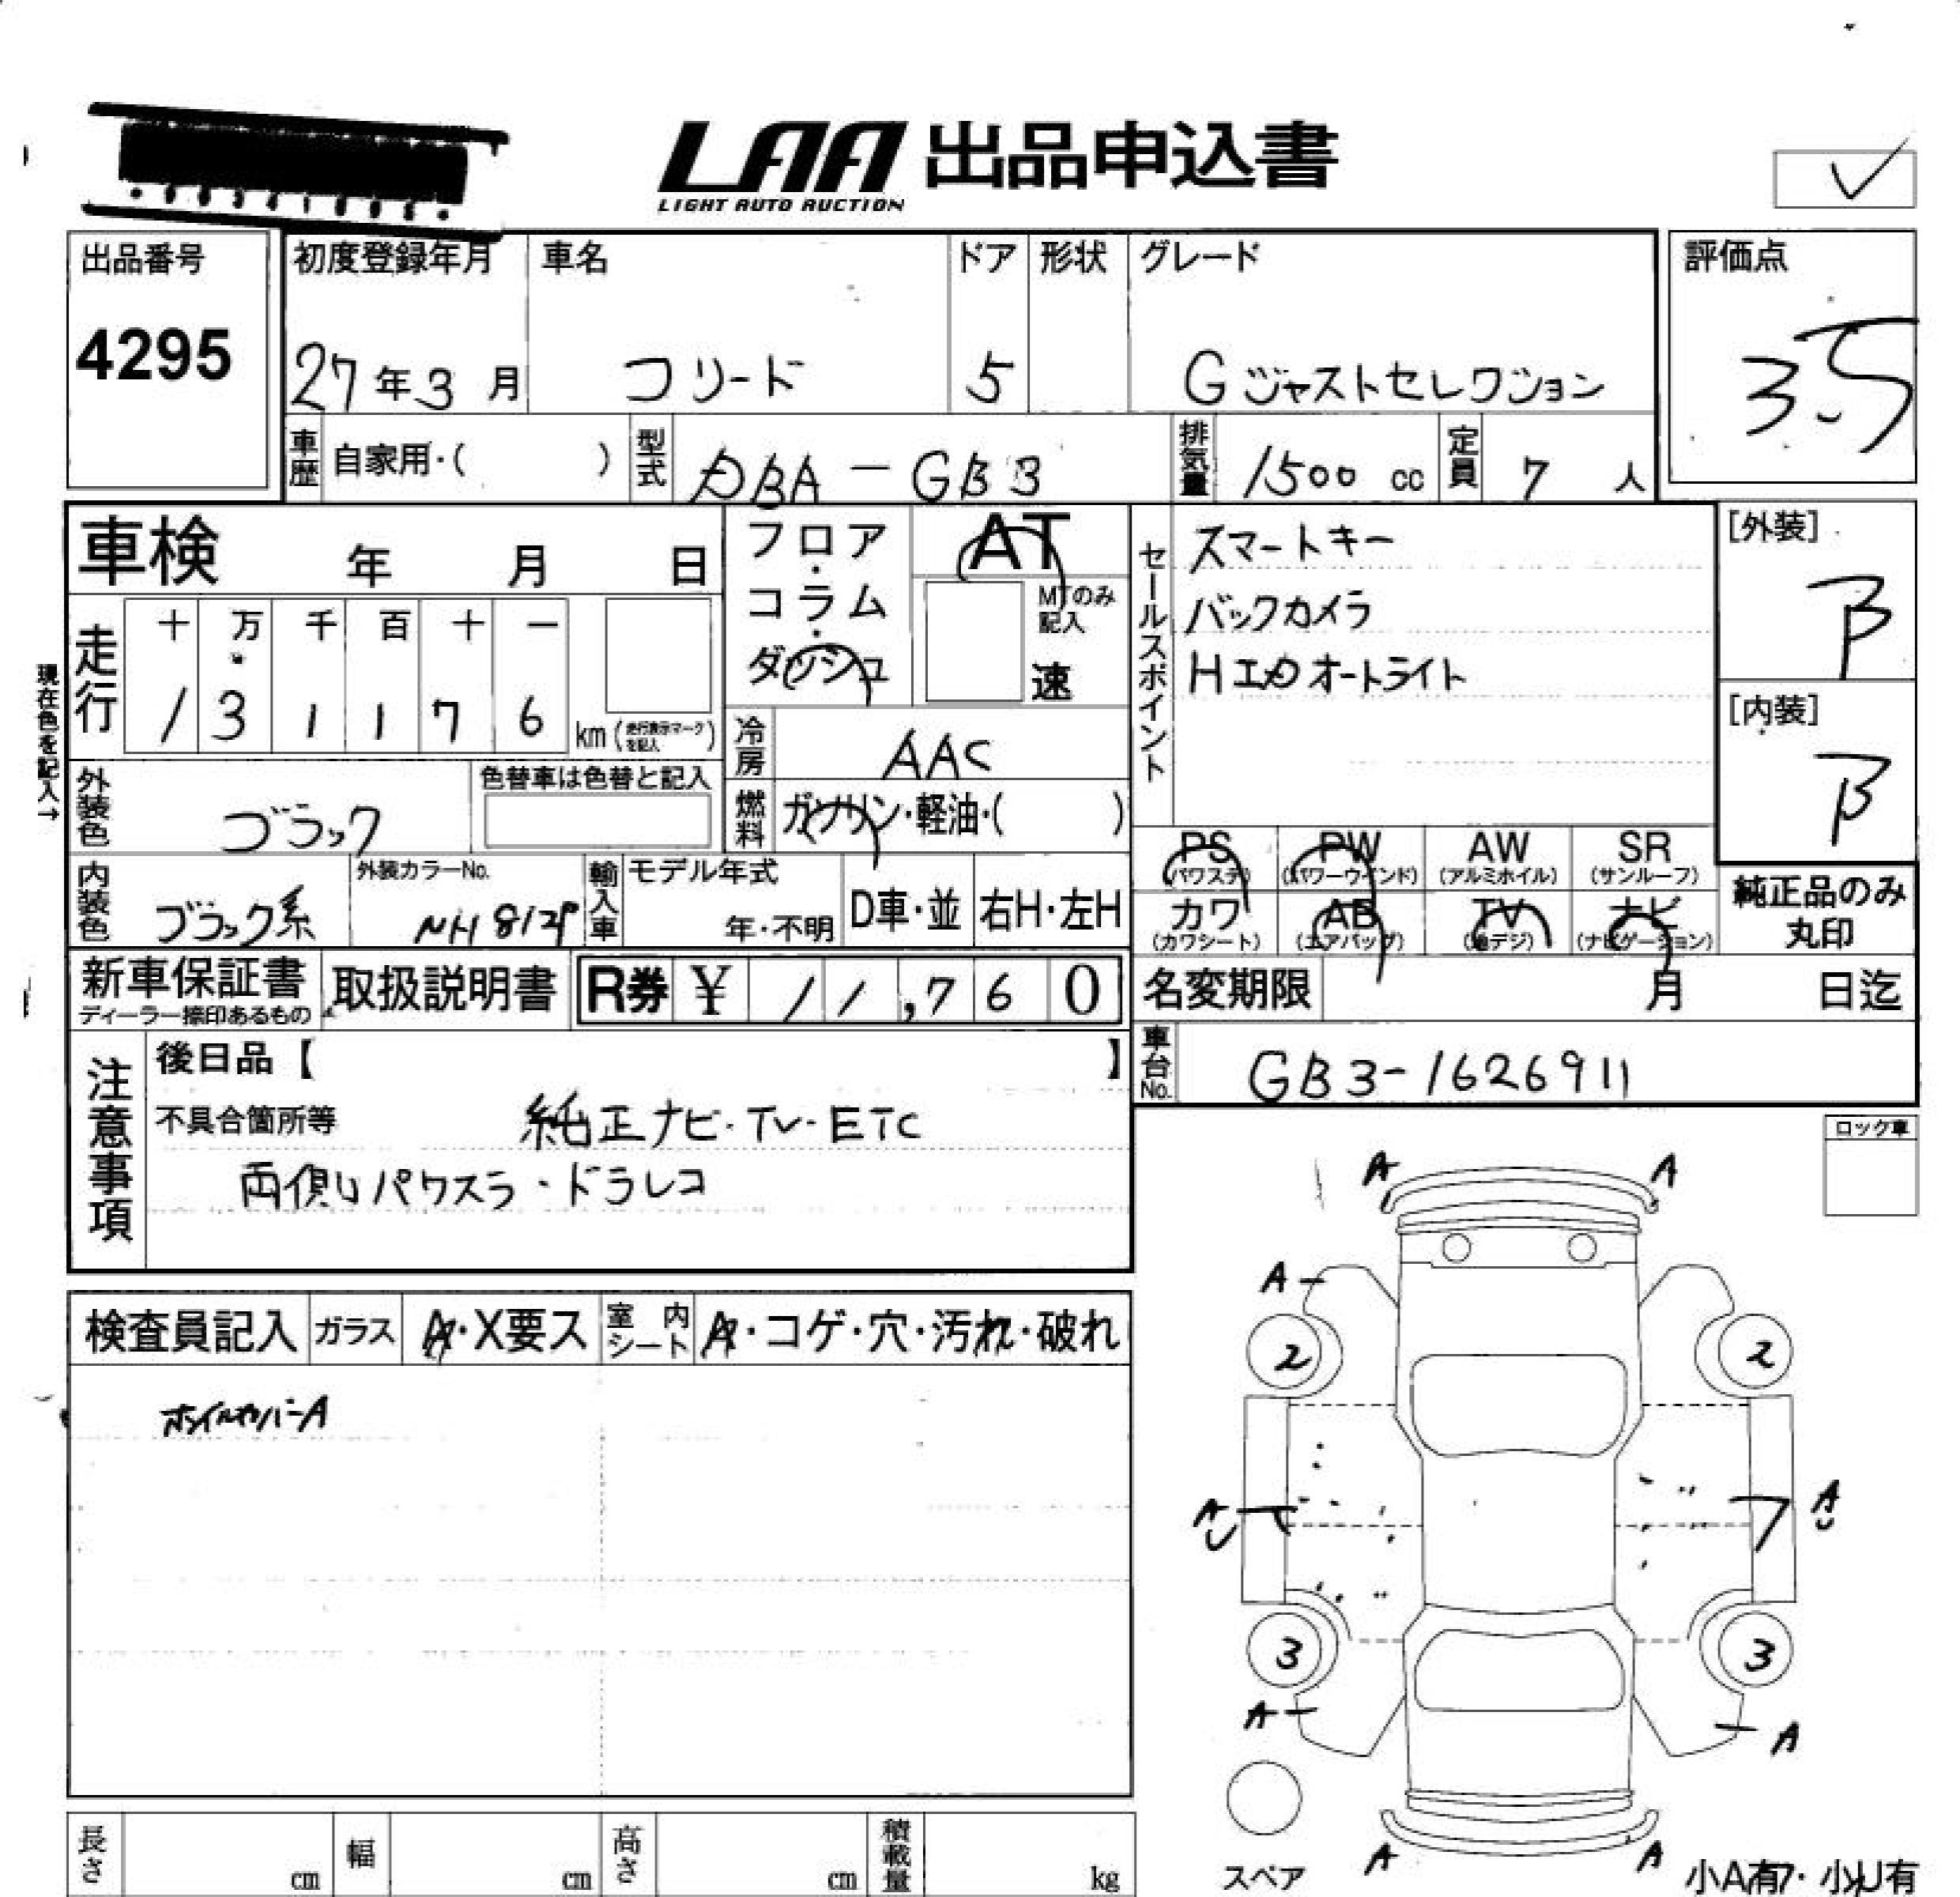 LAA 出品申込書
LIGHT AUTO AUCTION
出品番号
4295
初度登録年月
27年3月
車名
フリード
ドア
5
形状
グレード
Gジャストセレクション
評価点
3.5
車歴 自家用・( )
型式 DBA-GB3
排気量 1500 cc
定員 7 人
車検 年 月 日
フロア・コラム・ダッシュ
AT
MTのみ記入
速
セールスポイント
スマートキー
バックカメラ
HID オートライト
[外装]
B
[内装]
B
現在色を記入→
走行
十 万 千 百 十 一
1 3 1 1 7 6 km (走行表示マークを記入)
冷房 AAC
燃料 ガソリン・軽油・( )
外装色 ブラック
色替車は色替と記入
内装色 ブラック系
外装カラーNo.
NH812P
輸入車
モデル年式
年・不明
D車・並
右H・左H
PS (パワステ)
PW (パワーウインド)
AW (アルミホイル)
SR (サンルーフ)
カワ (カワシート)
AB (エアバッグ)
TV (地デジ)
ナビ (ナビゲーション)
純正品のみ
丸印
新車保証書
ディーラー捺印あるもの
取扱説明書
R券 ¥ 11,760
名変期限 月 日迄
車台No. GB3-1626911
注意事項
後日品【 】
不具合箇所等 純正ナビ・TV・ETC
両側パワスラ・ドラレコ
ロック車
検査員記入
ガラス A・X要ス
室内シート A・コゲ・穴・汚れ・破れ
ホイルカバーA
A A
A
2 2
A U
A U
3 3
A
A
A A
スペア
小A有・小U有
長さ cm
幅 cm
高さ cm
積載量 kg